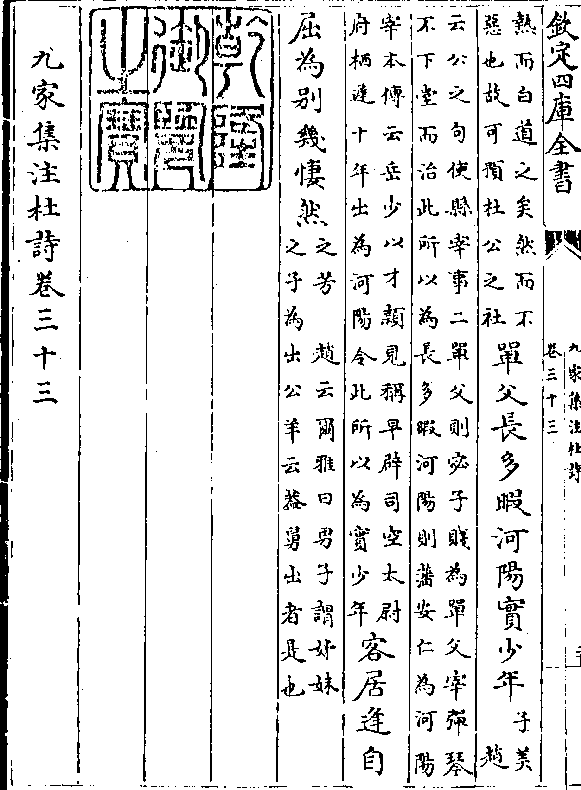 欽定四庫全書
九家集注杜詩
卷三十三
熟而白道之矣然而不
惡也故可預杜公之社
單父長多暇河陽實少年
子美
趙
云公之句使縣宰事二單父則宓子賤為單父宰彈琴
不下堂而治此所以為長多暇河陽則潘安仁為河陽
宰本傳云岳少以才穎見稱早辟司空太尉
府栖遲十年出為河陽令此所以為實少年
客居逢自
屈為別幾悽然
之芳 趙云爾雅曰男子謂姊妹
之子為出公羊云葢舅出者是也
乾隆御覽之寶
九家集注杜詩卷三十三